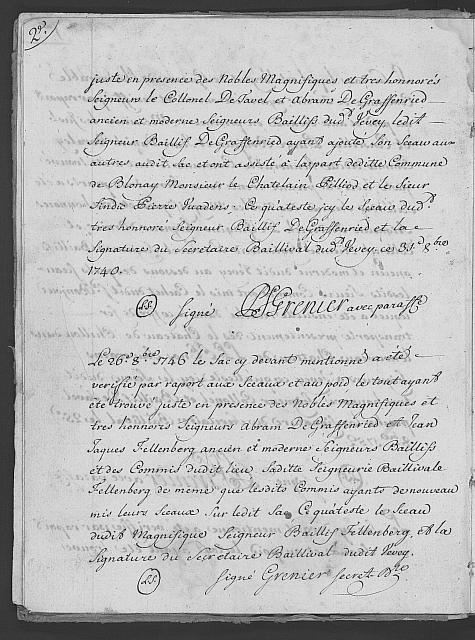 2.^e
juste en presence des Nobles Magnifiques et tres honnorés
Seigneurs le Collonel De Tavel et Abram De Graffenried
ancien et moderne Seigneurs Baillifs dud.^t Vevey ledit
Seigneur Baillif De Graffenried ayant ajouté Son Sceau aux
autres audit Sac et ont assisté à la part de ditte Commune
de Blonay Monsieur le Chatelain Pilliod et le Sieur
Sindic Pierre Vuadens. Ce qu'ateste icy le Sceau dud.^t
tres honnoré Seigneur Baillif De Graffenried et la
Signature du Secretaire Baillival dud.^t Vevey ce 31.^e 8.^bre
1740.
(LS) Signé Grenier avec paraffe
Le 26.^e 8.^bre 1746 le Sac cy devant mentionné a été
verifié par raport aux Sceaux et au poid le tout ayant
été trouvé juste en presence des Nobles Magnifiques et
tres honnorés Seigneurs Abram De Graffenried et Jean
Jaques Fellenberg ancien et moderne Seigneurs Baillifs
et des Commis dudit lieu, Saditte Seigneurie Baillivale
Fellenberg de meme que lesdits Commis ayants de nouveau
mis leurs Sceaux Sur ledit Sac Ce qu'ateste le Sceau
dudit Magnifique Seigneur Baillif Fellenberg, et la
Signature du Secretaire Baillival dudit Vevey.
(LS) Signé Grenier Secret.^re